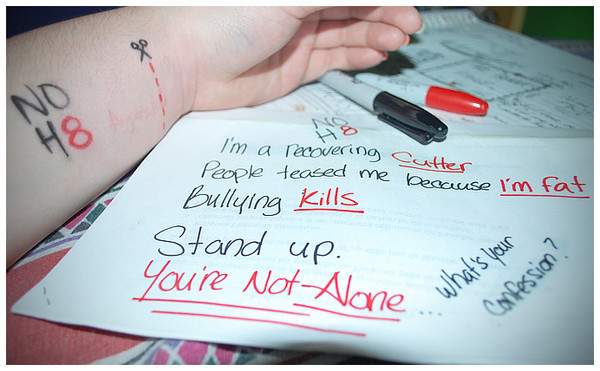 NO
H8
NO
H8
I'm a recovering Cutter
People teased me because I'm fat
Bullying Kills
Stand up.
You're Not Alone...
What's your
confession?